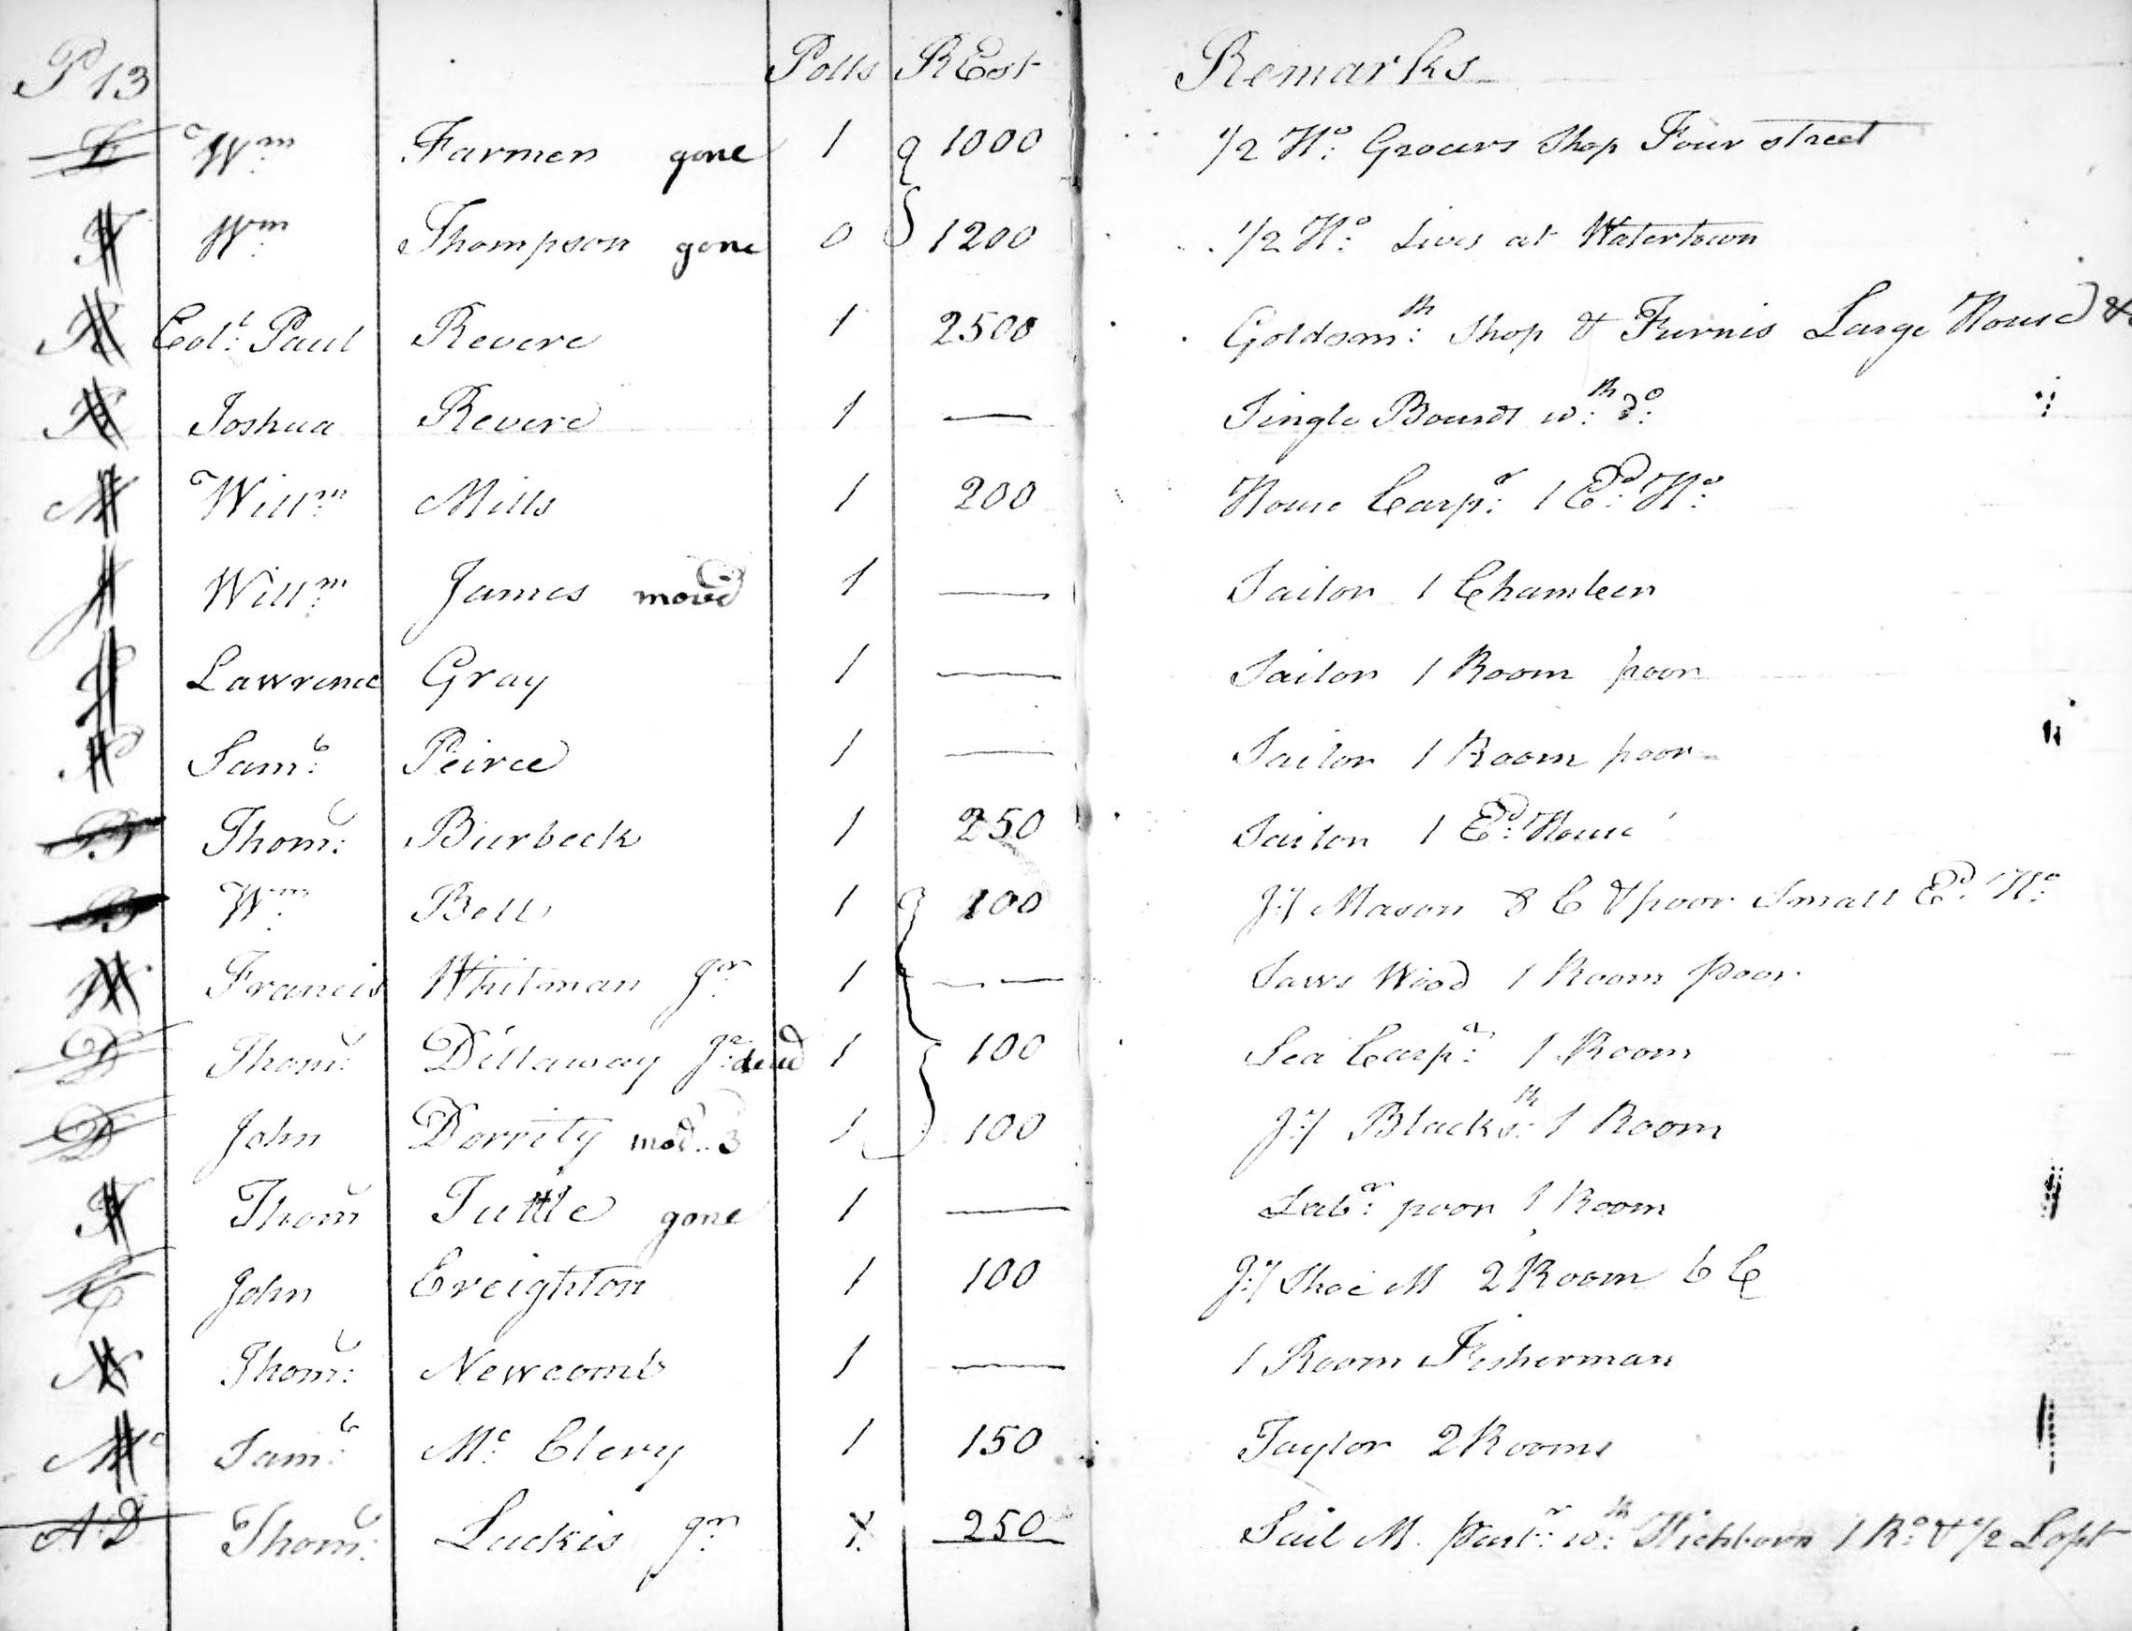 P 13 Polls R Est Remarks
F Wm Farmer gone 1 1000 1/2 Ho: Grocers Shop Four street
T Wm Thompson gone 0 1200 1/2 Ho: Lives at Watertown
R Colo: Paul Revere 1 2500 Goldsmth: Shop & Furnis Large House &
R Joshua Revere 1 — Single Boards wth: do:
M Willm Mills 1 200 House Carpr: 1 Ed: Ho:
J Willm James moved 1 — Sailor 1 Chamber
G Lawrence Gray 1 — Sailor 1 Room poor
P Saml: Peirce 1 — Sailor 1 Room poor
B Thoms: Burbeck 1 250 Sailor 1 Ed: House
B Wm Bell 1 100 Jy Mason 8 C & poor Small Ed: Ho:
W Francis Whitman Jr 1 — Saws Wood 1 Room poor
D Thoms: Dillaway Jr: dead 1 100 Sea Carpr: 1 Room
D John Dorrity mod. 3 1 100 Jy Blacksth: 1 Room
T Thoms Tuttle gone 1 — Labr: poor 1 Room
C John Creighton 1 100 Jy Shoe M 2 Room 6 C
N Thoms: Newcomb 1 — 1 Room Fisherman
Mc Saml: Mc: Clery 1 150 Taylor 2 Rooms
AD Thoms: Luckis Jr: 1 250 Sail M. partr: wth: Hichborn 1 Ro: & 1/2 Loft